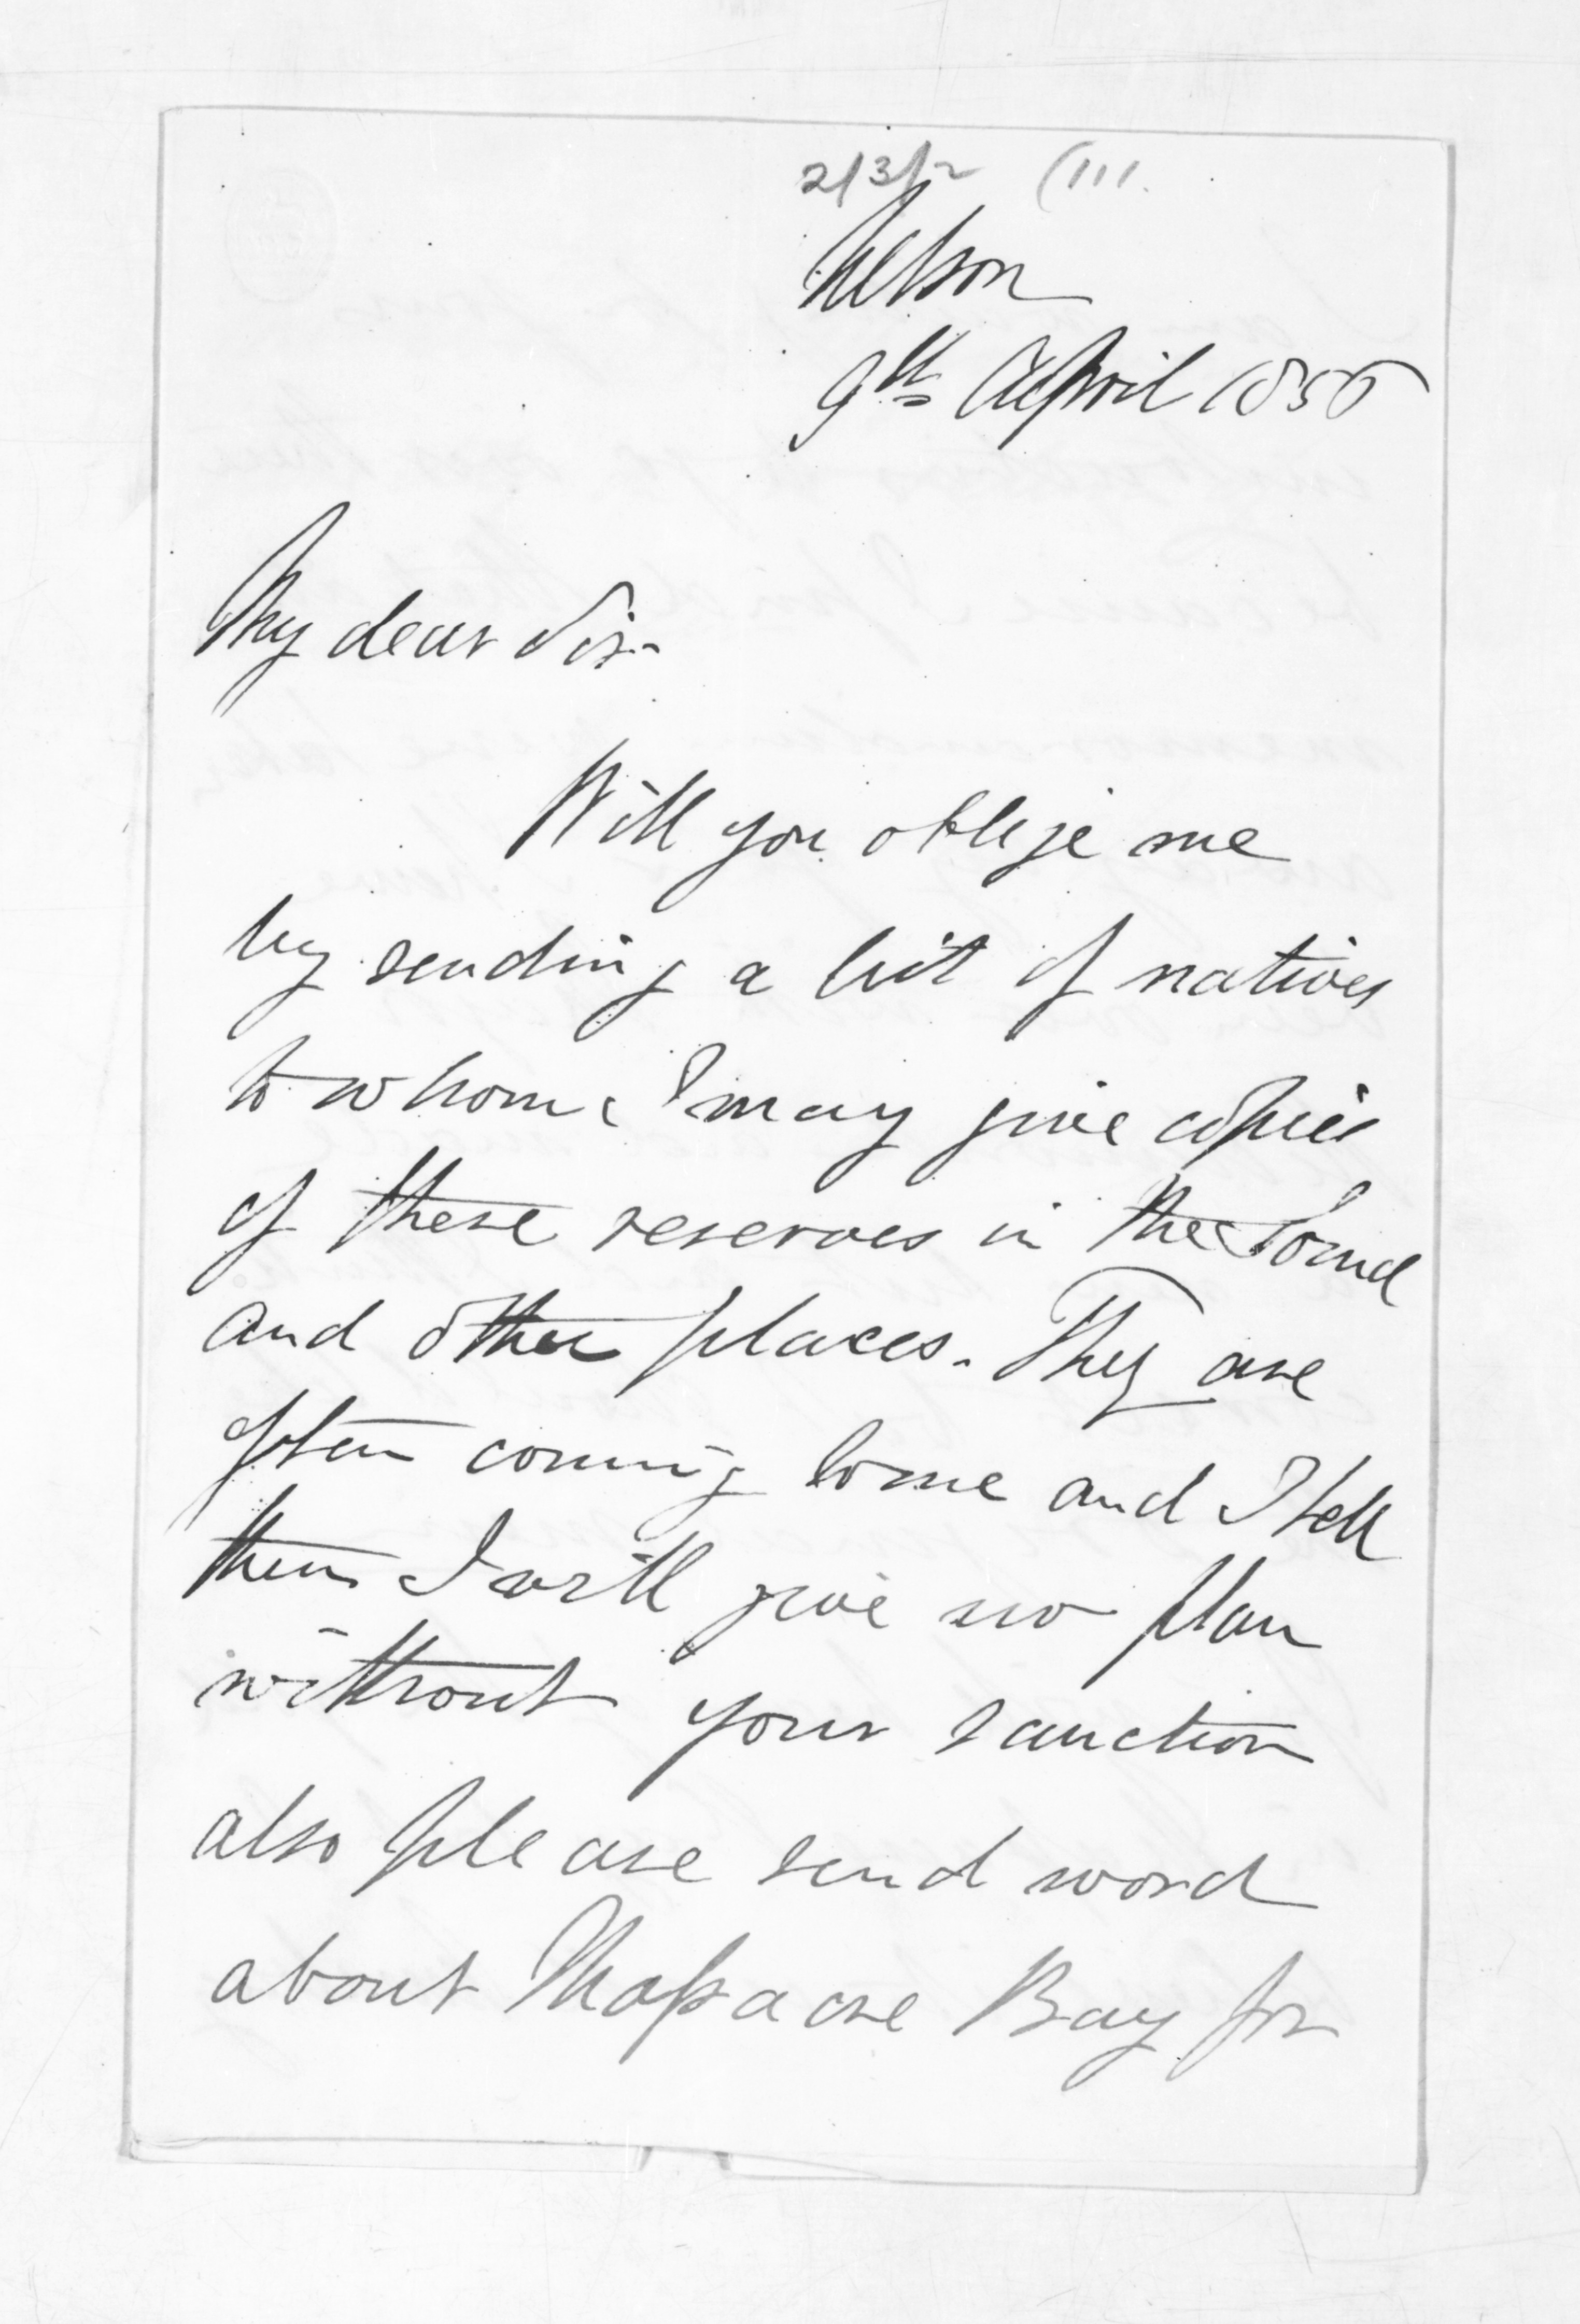 2/3/2 (111.
Nelson
9th April 1856
My dear Sir
Will you oblige me
by sending a list of natives
to whom I may give copies
of these reserves in the Sound
and other places. They are
often coming to me and I tell
them I will give no plan
without your sanction
also please send word
about Massacre Bay for